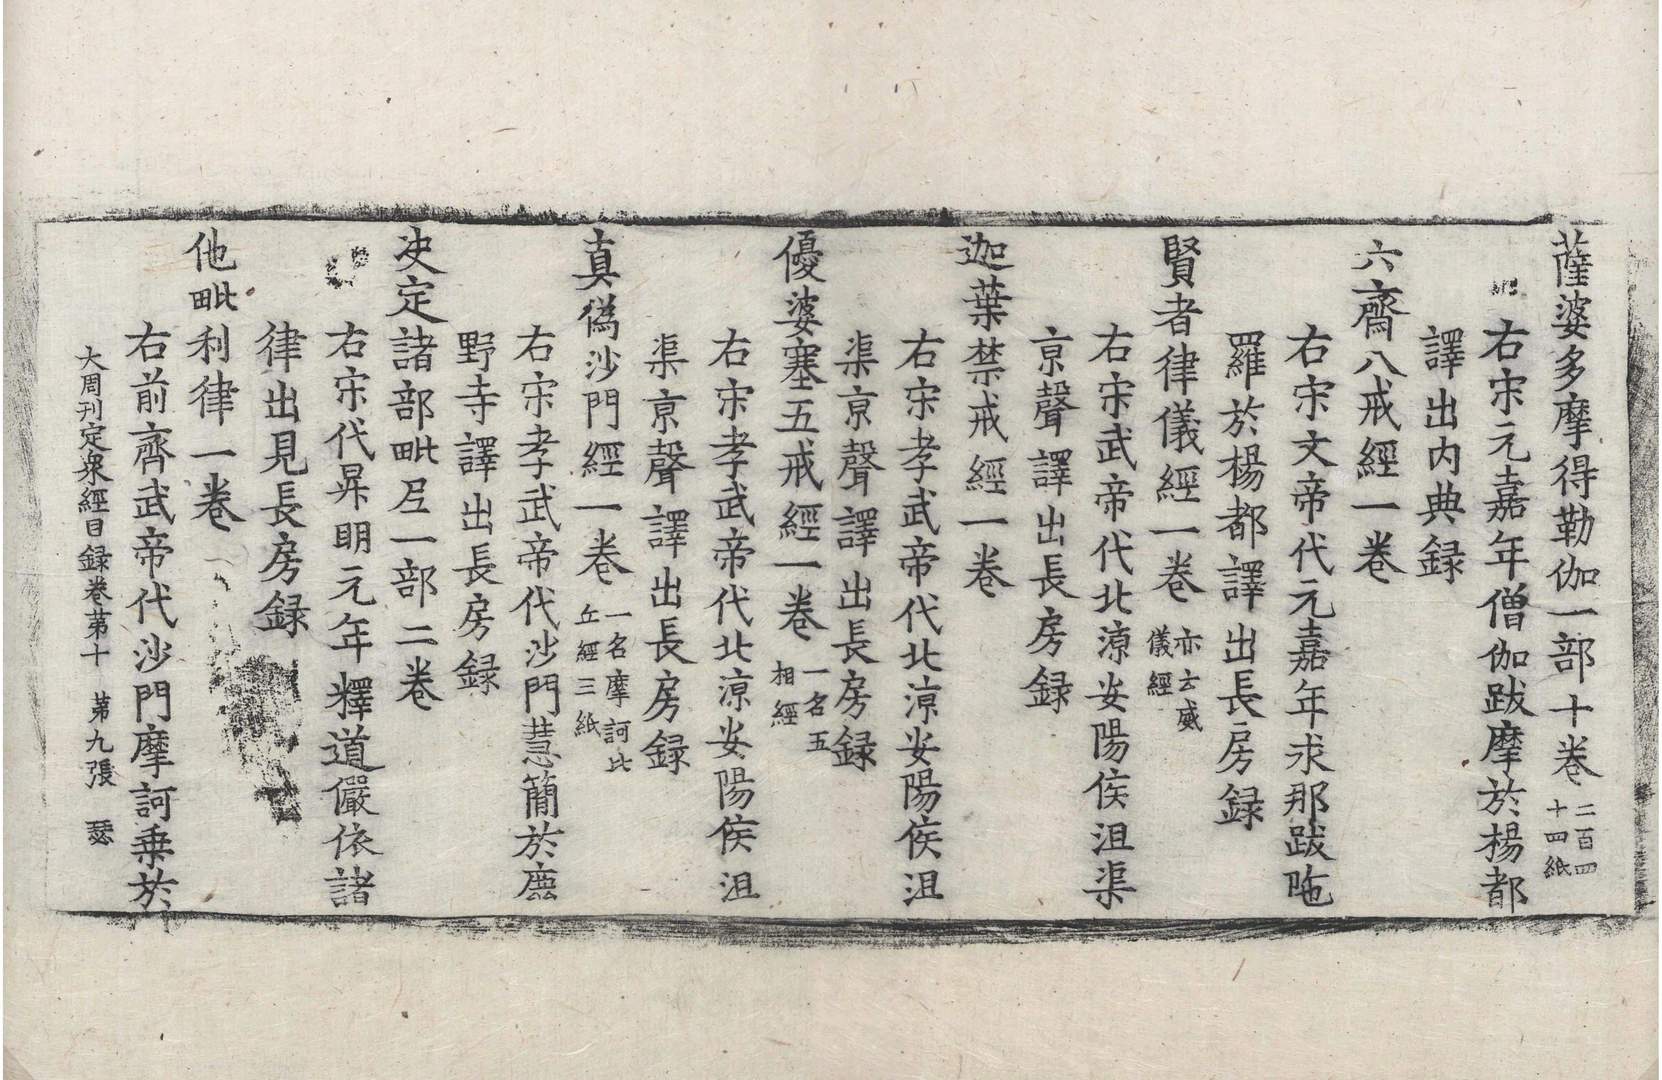 薩婆多摩得勒伽一部十卷二百四十四紙
右宋元嘉年僧伽跋摩於楊都
譯出内典録
六齋八戒經一卷
右宋文帝代元嘉年求那跋陁
羅於楊都譯出長房録
賢者律儀經一卷亦云威儀經
右宋武帝代北涼安陽侯沮渠
京聲譯出長房録
迦葉禁戒經一卷
右宋孝武帝代北涼安陽侯沮
渠京聲譯出長房録
優婆塞五戒經一卷一名五相經
右宋孝武帝代北涼安陽侯沮
渠京聲譯出長房録
真僞沙門經一卷一名摩訶比丘經三紙
右宋孝武帝代沙門慧簡於鹿
野寺譯出長房録
决定諸部毗尼一部二卷
右宋代昇明元年釋道儼依諸
律出見長房録
他毗利律一卷
右前齊武帝代沙門摩訶乗於
大周刊定衆經目録卷苐十 苐九張 瑟